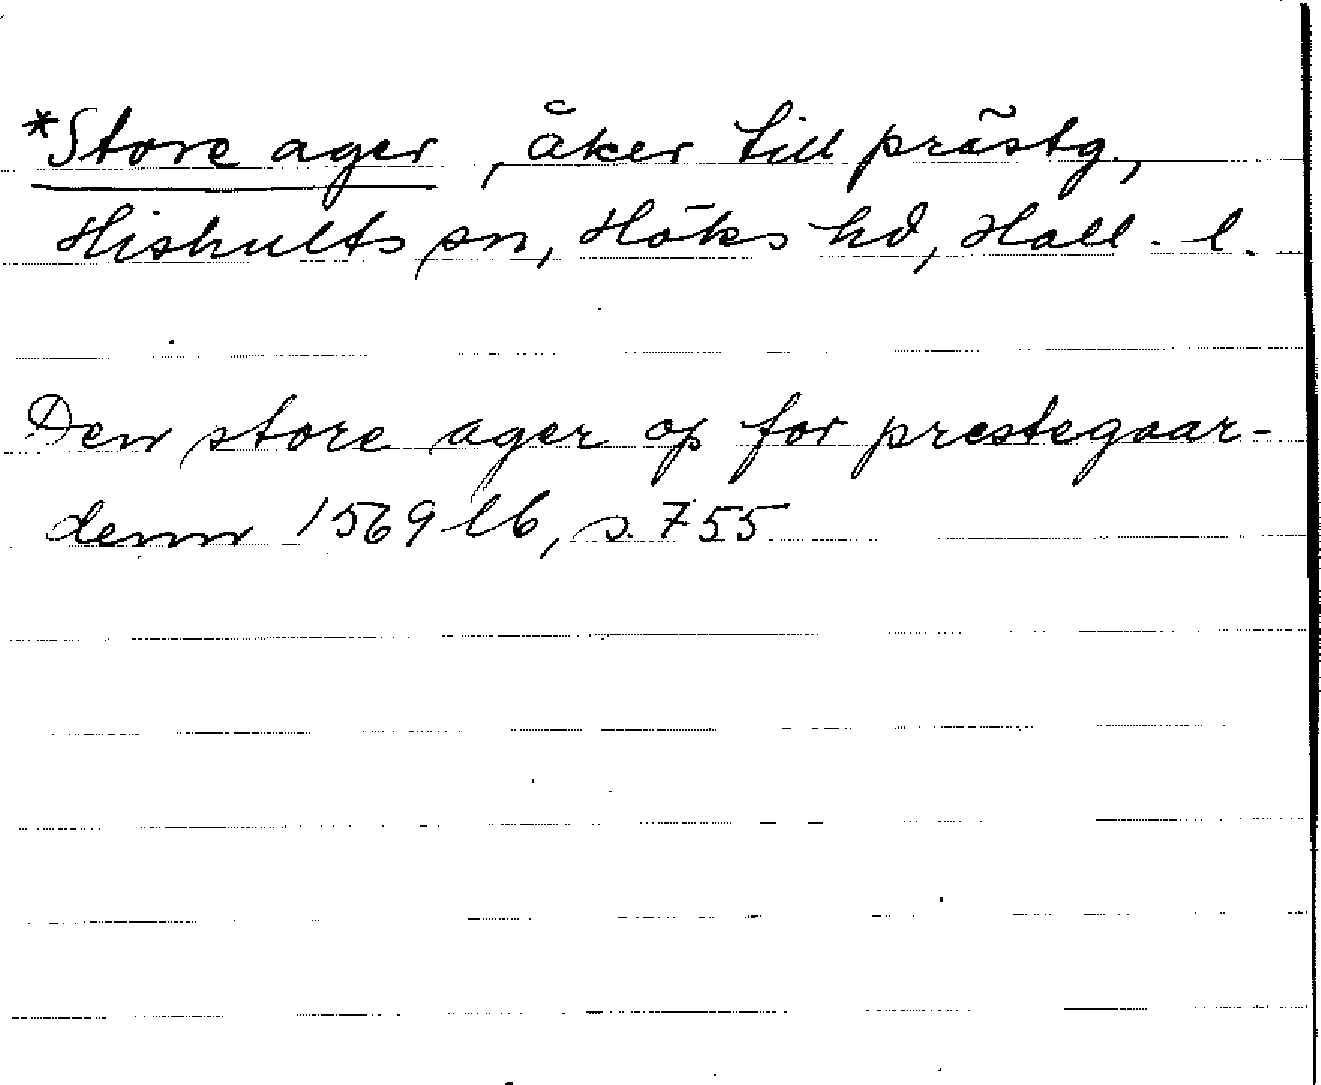 *Store ager, åker till prästg.,
Hishults sn, Höks hd, Hall. l.
Den store ager op for prestegaar-
denn 1569 lb, s. 755